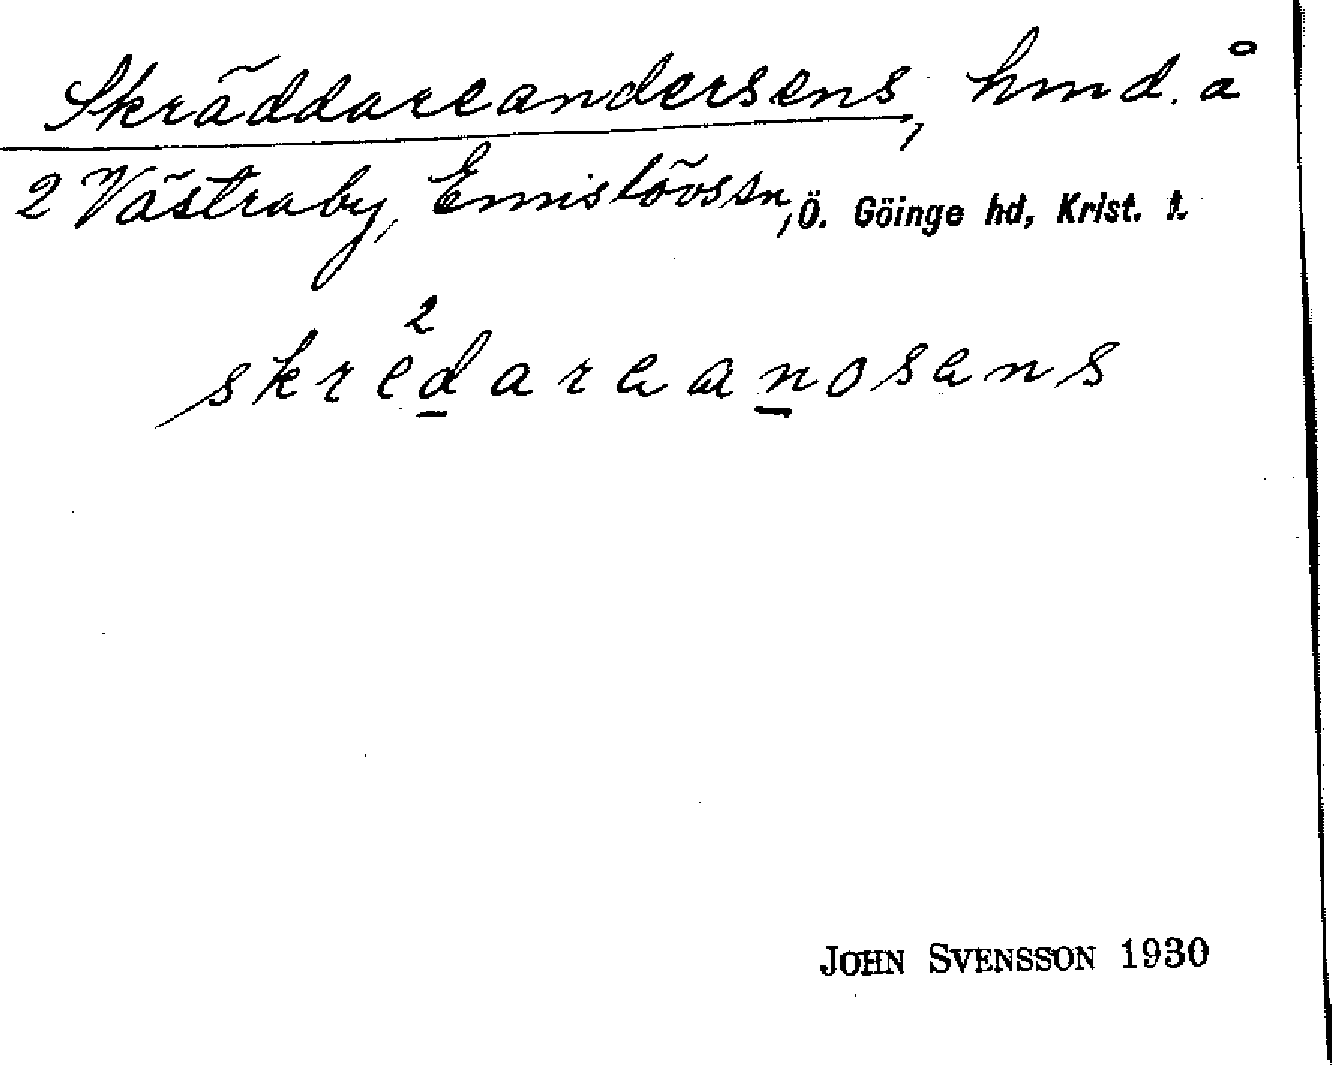 Skräddareandersens, hmd. å
2 Västraby, Emislövs sn, Ö. Göinge hd, Krist. l.
2
skredareanosens
JOHN SVENSSON 1930